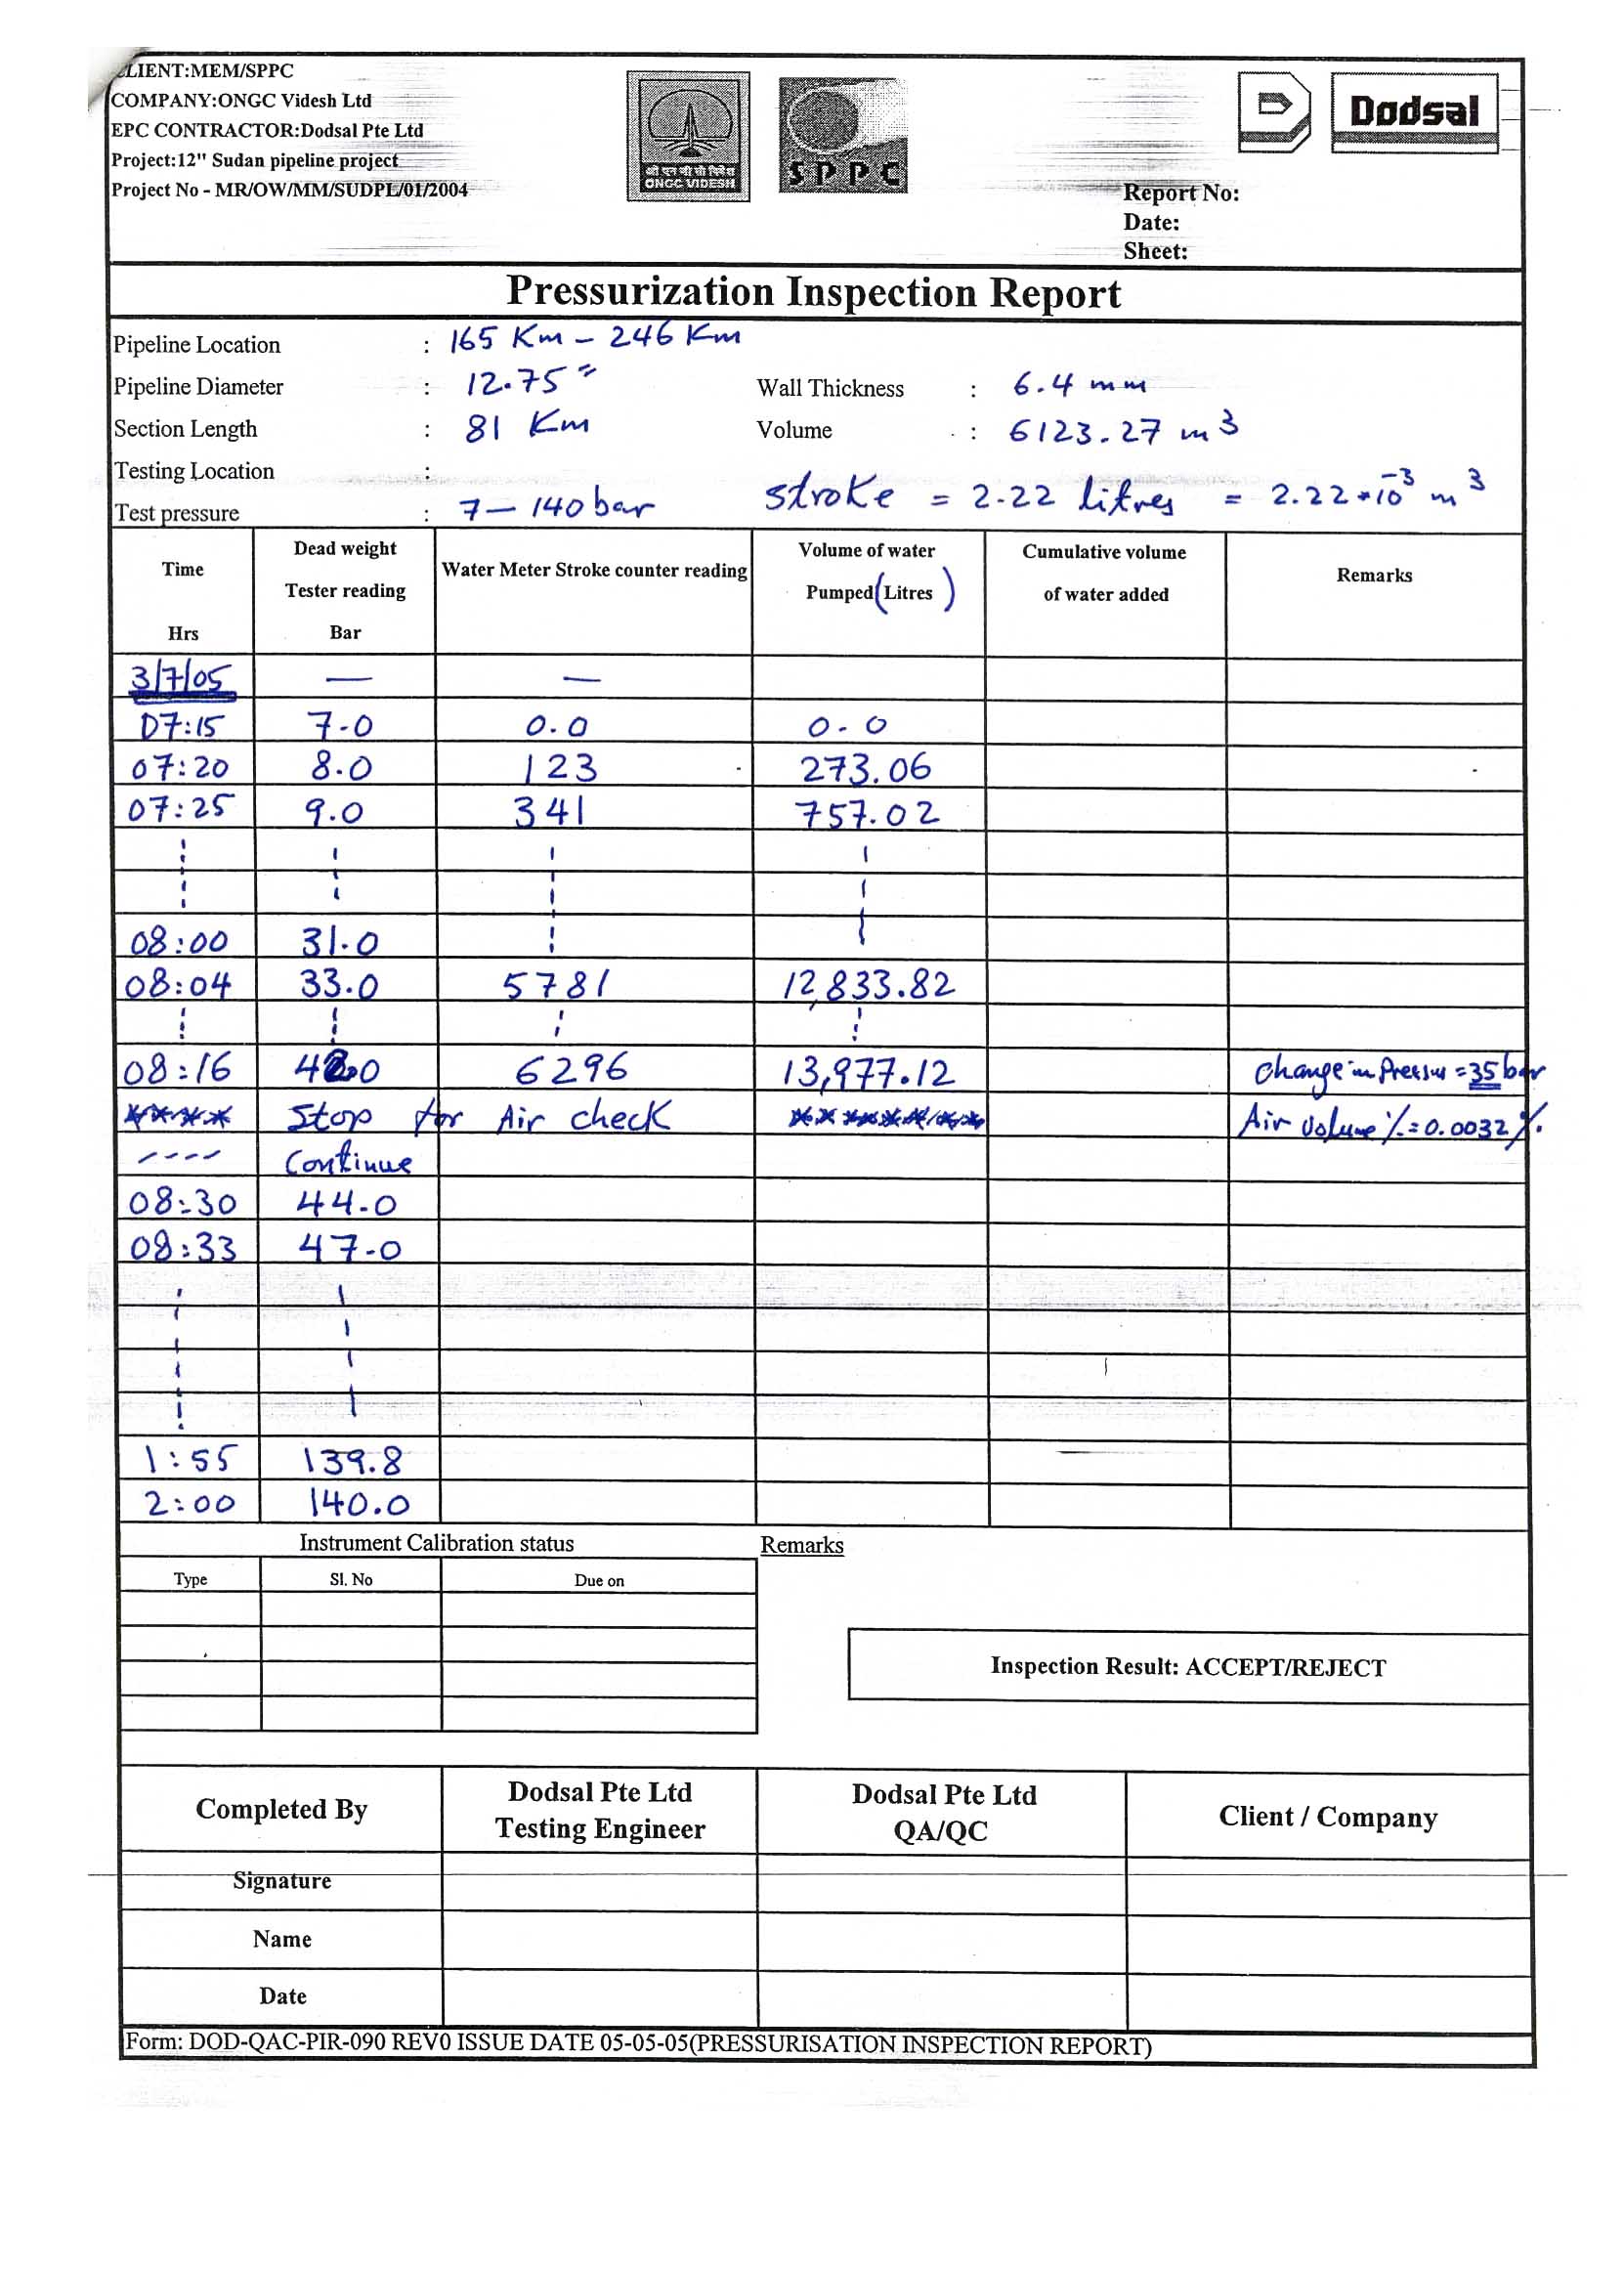 CLIENT:MEM/SPPC
COMPANY:ONGC Videsh Ltd
EPC CONTRACTOR:Dodsal Pte Ltd
Project:12" Sudan pipeline project
Project No - MR/OW/MM/SUDPL/01/2004
ONGC VIDESH
SPPC
Dodsal
Report No:
Date:
Sheet:
Pressurization Inspection Report
Pipeline Location : 165 Km - 246 Km
Pipeline Diameter : 12.75" Wall Thickness : 6.4 mm
Section Length : 81 Km Volume : 6123.27 m³
Testing Location :
Test pressure : 7 - 140 bar stroke = 2.22 litres = 2.22*10⁻³ m³
Time Hrs Dead weight Tester reading Bar Water Meter Stroke counter reading Volume of water Pumped (Litres) Cumulative volume of water added Remarks
3/7/05 — —
07:15 7.0 0.0 0.0
07:20 8.0 123 273.06
07:25 9.0 341 757.02
08:00 31.0
08:04 33.0 5781 12,833.82
08:16 42.0 6296 13,977.12 change in Pressur = 35 bar
**** Stop for Air check ******** Air volume % = 0.0032 %.
---- Continue
08:30 44.0
08:33 47.0
1:55 139.8
2:00 140.0
Instrument Calibration status Remarks
Type Sl. No Due on
Inspection Result: ACCEPT/REJECT
Completed By Dodsal Pte Ltd Testing Engineer Dodsal Pte Ltd QA/QC Client / Company
Signature
Name
Date
Form: DOD-QAC-PIR-090 REV0 ISSUE DATE 05-05-05(PRESSURISATION INSPECTION REPORT)